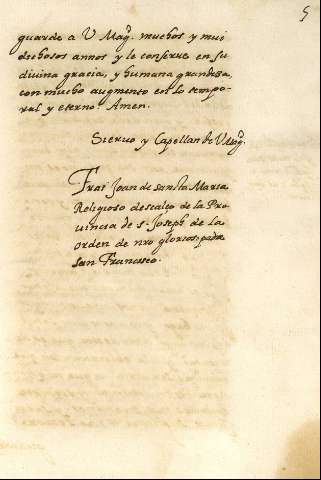 5
guarde a V Mag. muchos y mui
dichosos annos y le conserve en su
divina gracia, y humana grandesa,
con mucho augmento en lo tempo-
ral y eterno. Amen.
Siervo y Capellan de V Mag.
Frai Joan de sancta Maria
Religioso descalco de la Pro
vincia de s. Joseph de la
orden de nro glorioso padre
san Francisco.